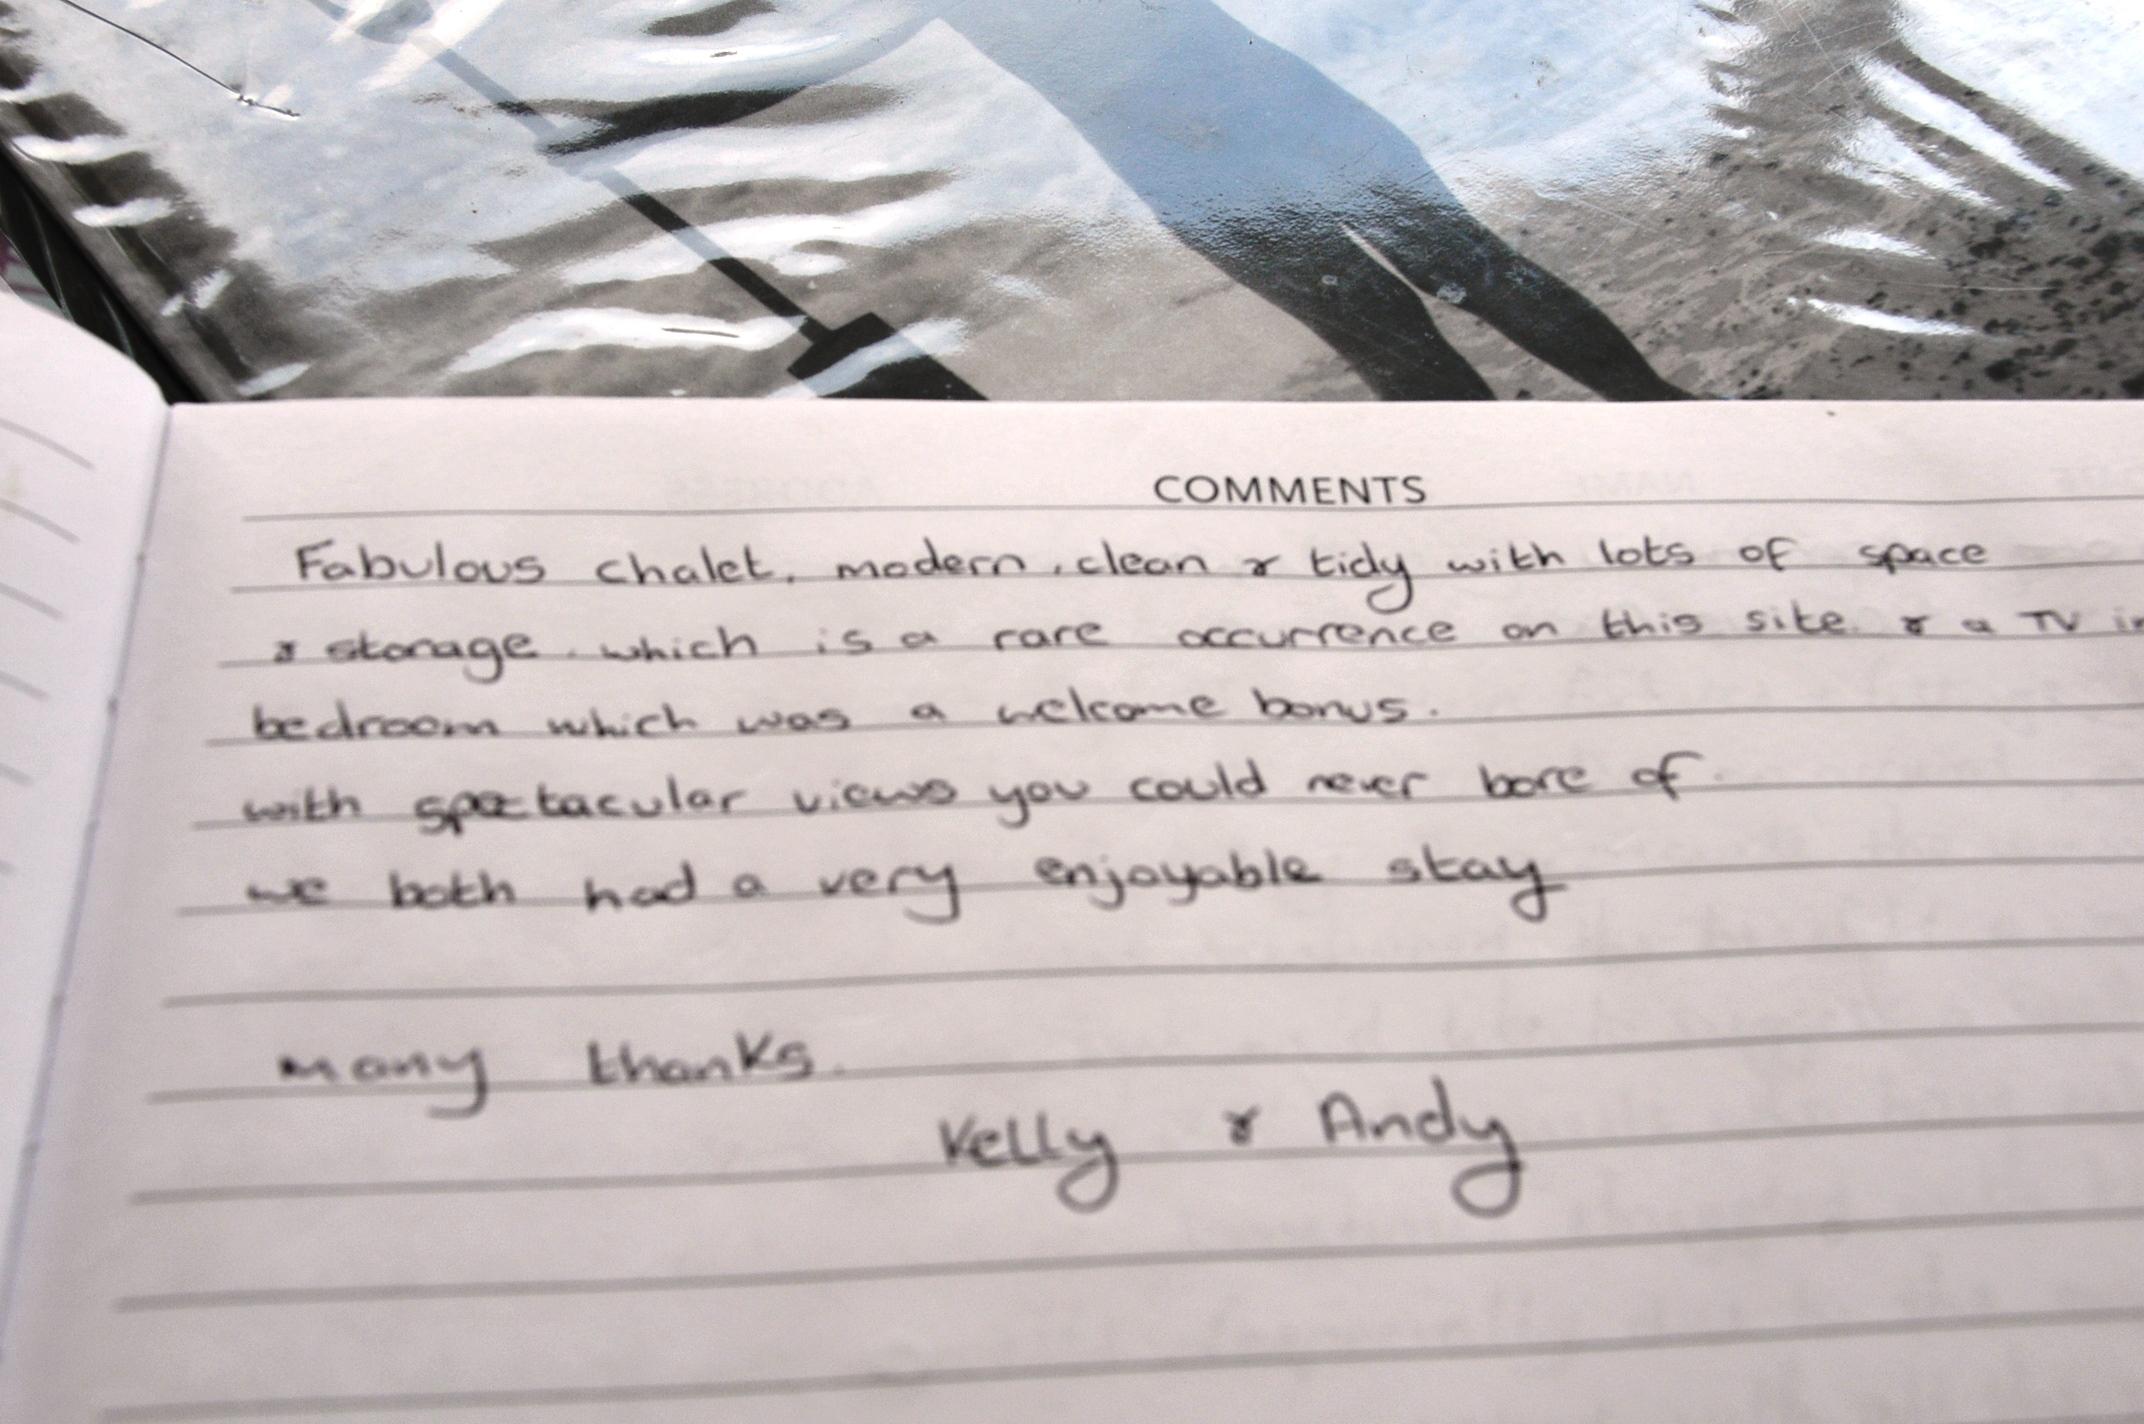 COMMENTS
Fabulous chalet, modern, clean & tidy with lots of space
& storage. which is a rare occurrence on this site. & a TV in
bedroom which was a welcome bonus.
with spectacular views you could never bore of.
we both had a very enjoyable stay
many thanks.
Kelly & Andy